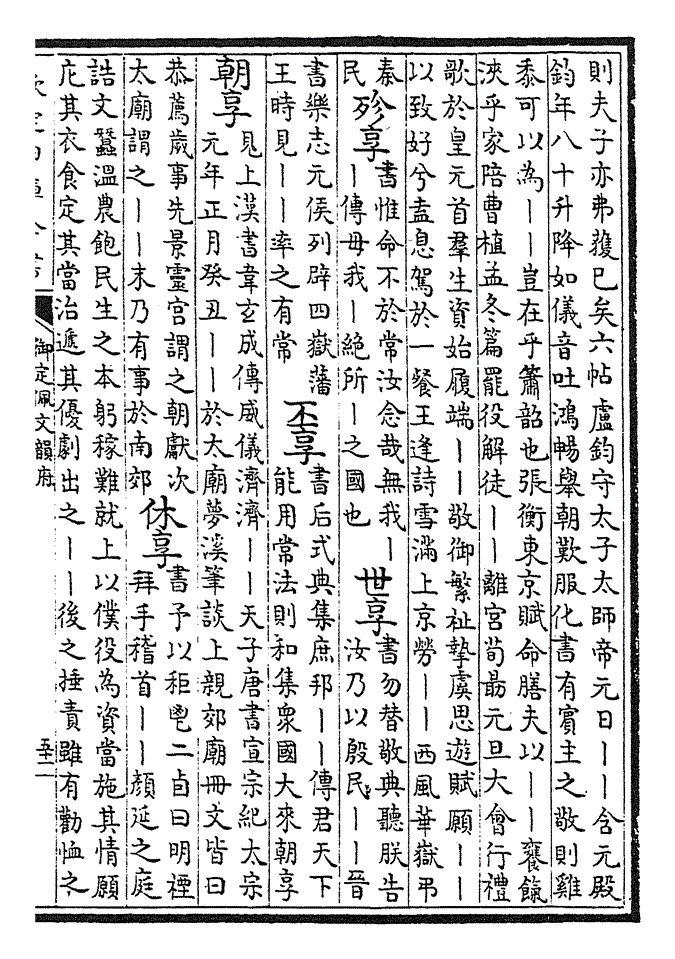 則夫子亦弗䕶已矣六帖盧鈞守太子太師帝元日丨丨含元殿
鈞年八十升降如儀音吐鴻暢舉朝歎服化書有賓主之敬則雞
黍可以為丨丨豈在乎簫韶也張衡東京賦命膳夫以丨丨饔餼
浹乎家陪曹植孟冬篇罷役解徒丨丨離宮荀勗元旦大會行禮
歌於皇元首羣生資始履端丨丨敬御繁祉摯虞思遊賦願丨丨
以致好兮盍息駕於一餐王逢詩雪滿上京勞丨丨西風華嶽弔
秦
民
殄享
書惟命不於常汝念哉無我丨
丨傳毋我丨絶所丨之國也
世享
書勿替敬典聽朕告
汝乃以殷民丨丨晉
書樂志元侯列辟四嶽藩
王時見丨丨率之有常
丕享
書后式典集庶邦丨丨傳君天下
能用常法則和集衆國大來朝享
朝享
見上漢書韋玄成傳威儀濟濟丨丨天子唐書宣宗紀太宗
元年正月癸丑丨丨於太廟夢溪筆談上親郊廟冊文皆曰
恭薦歲事先景靈宮謂之朝獻次
太廟謂之丨丨末乃有事於南郊
休享
書予以秬鬯二卣曰明禋
拜手稽首丨丨顔延之庭
誥文蠶溫農飽民生之本躬稼難就上以僕役為資當施其情願
庀其衣食定其當治遞其優劇出之丨丨後之捶責雖有勸恤之
欽定四庫全書
御定佩文韻府
五十一